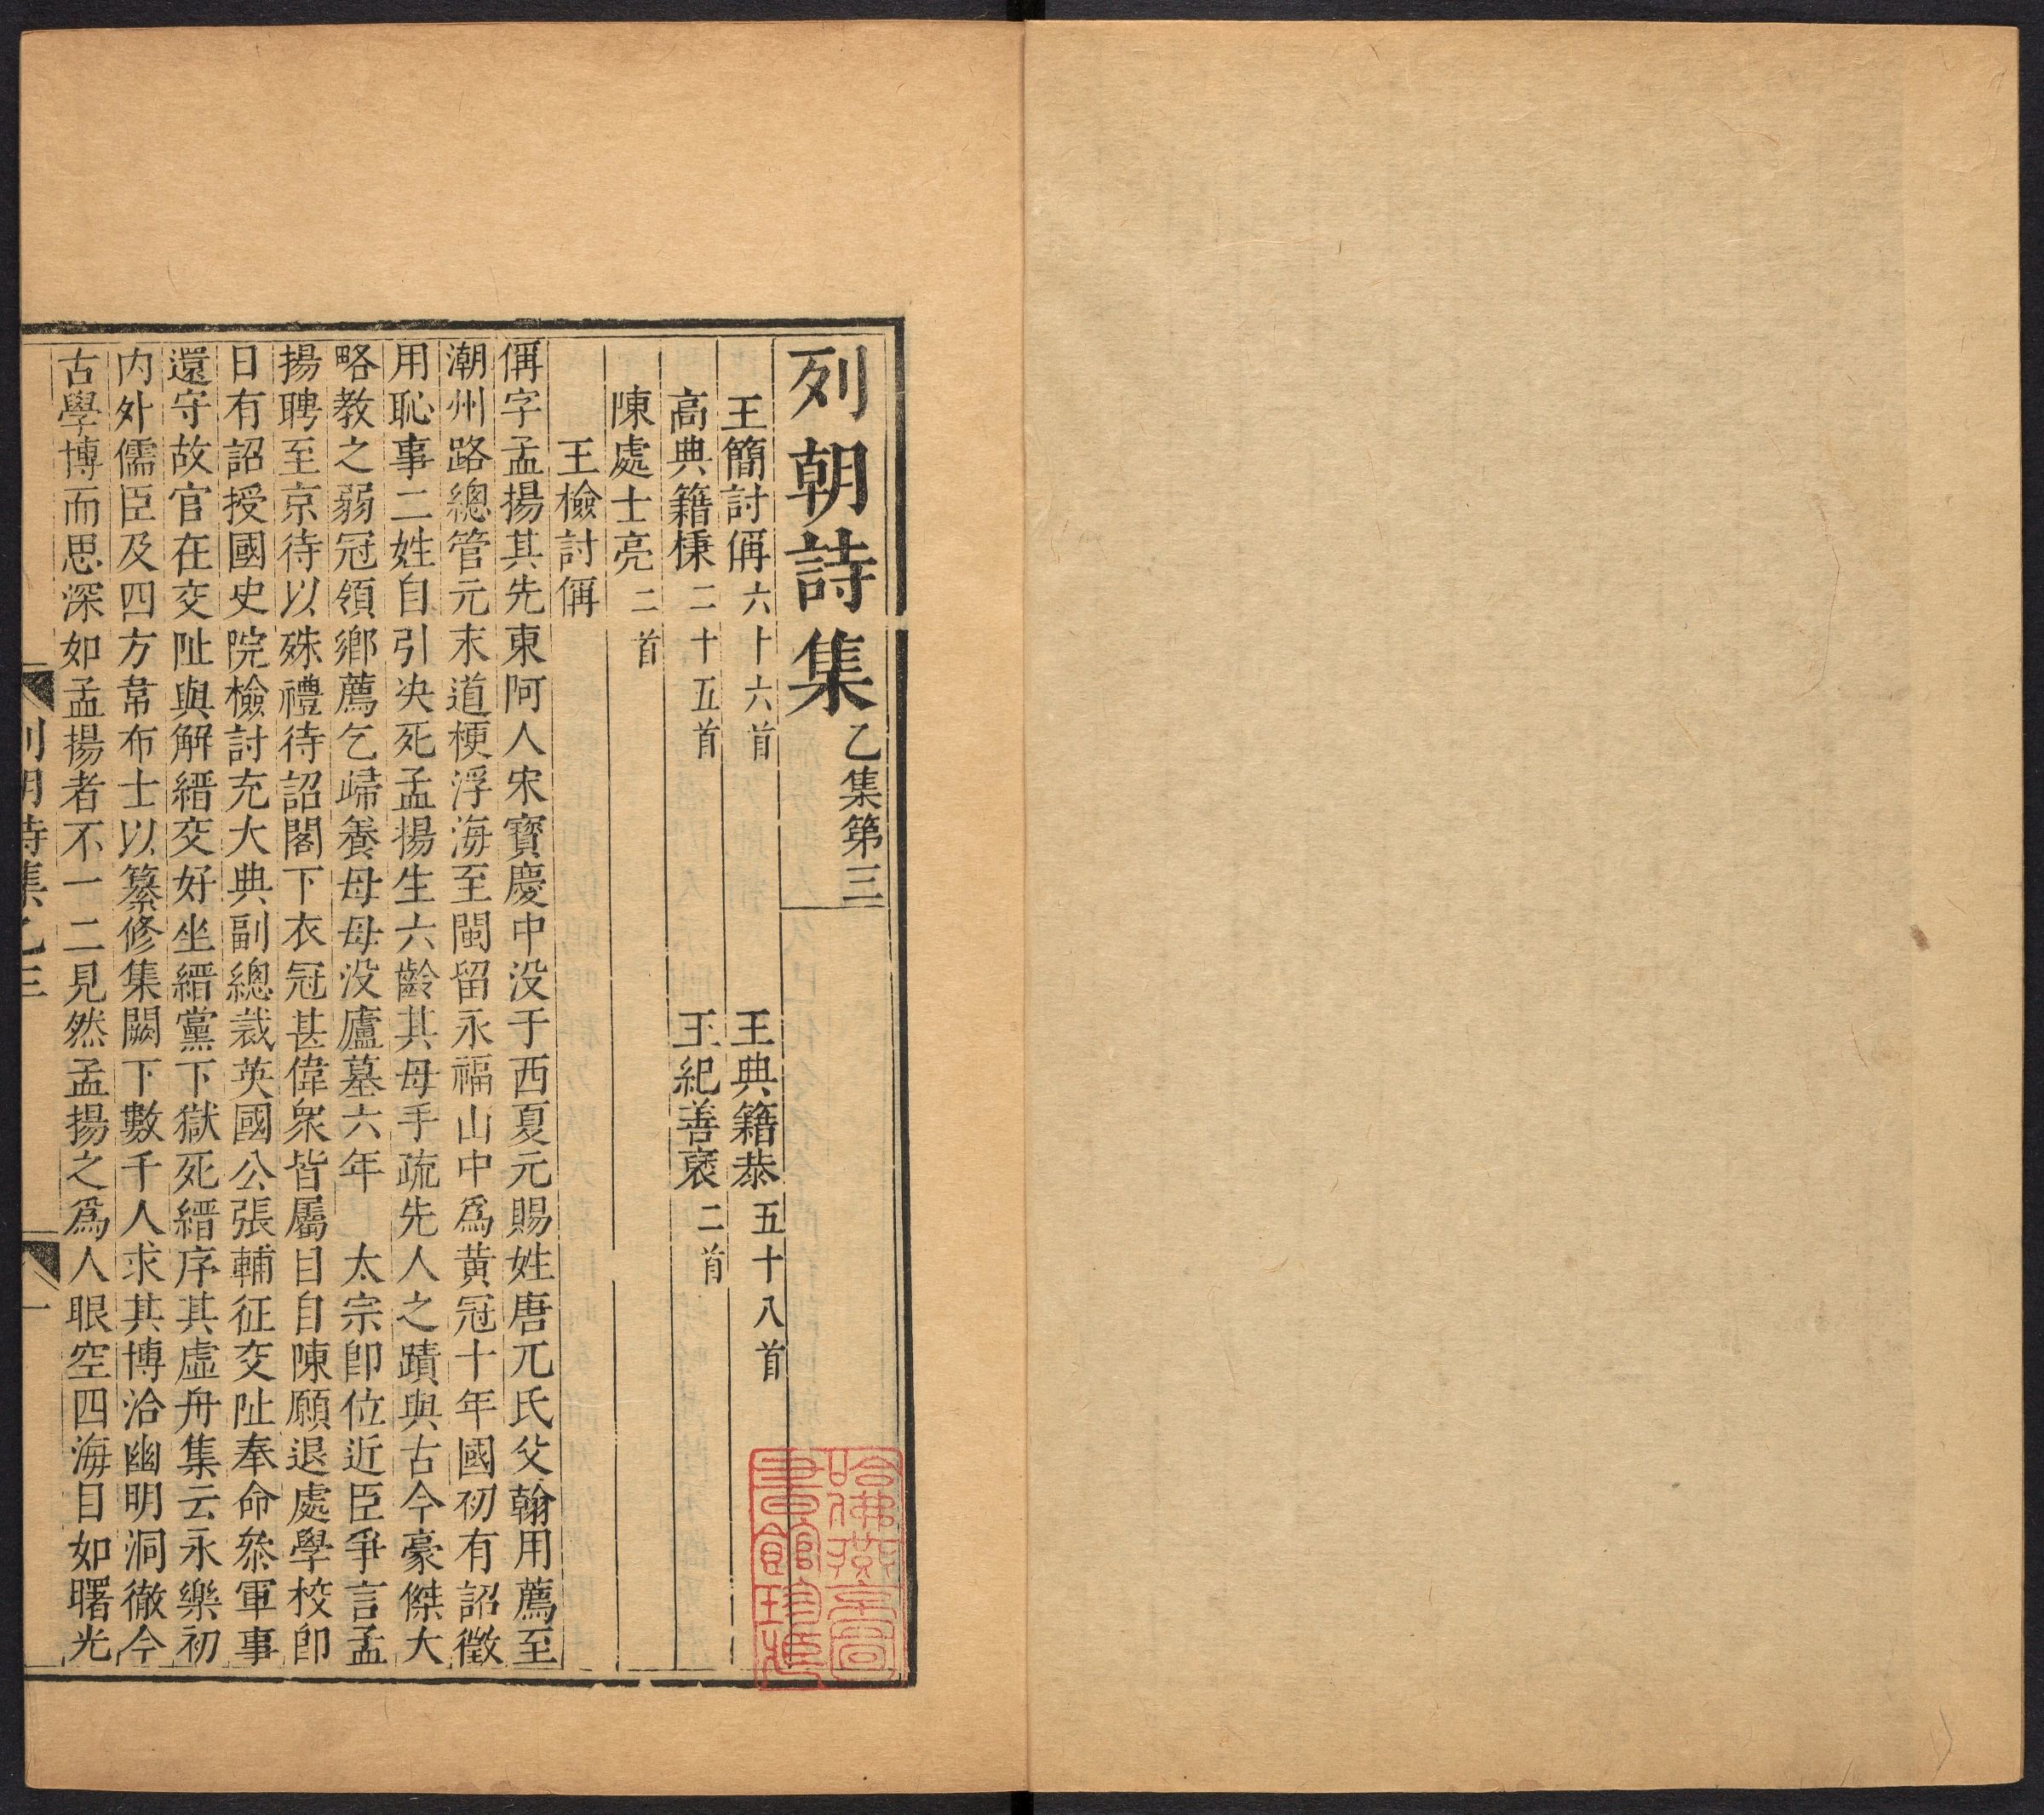 列朝詩集乙集第三
王簡討偁六十六首 王典籍恭五十八首
高典籍棅二十五首 王紀善褒二首
陳處士亮二首
王檢討偁
偁字孟揚其先東阿人宋寶慶中没于西夏元賜姓唐兀氏父翰用薦至
潮州路總管元末道梗浮海至閩留永福山中爲黄冠十年國初有詔徵
用恥事二姓自引决死孟揚生六齡其母手疏先人之蹟與古今豪傑大
略教之弱冠領鄉薦乞歸養母母没廬墓六年 太宗卽位近臣爭言孟
揚聘至京待以殊禮待詔閣下衣冠甚偉衆皆屬目自陳願退處學校卽
日有詔授國史院檢討充大典副總裁英國公張輔征交阯奉命叅軍事
還守故官在交阯與解縉交好坐縉黨下獄死縉序其虛舟集云永樂初
内外儒臣及四方韋布士以纂修集闕下數千人求其博洽幽明洞徹今
古學博而思深如孟揚者不一二見然孟揚之爲人眼空四海目如曙光
列朝詩集乙三 一
哈佛燕京圖
書館珍藏